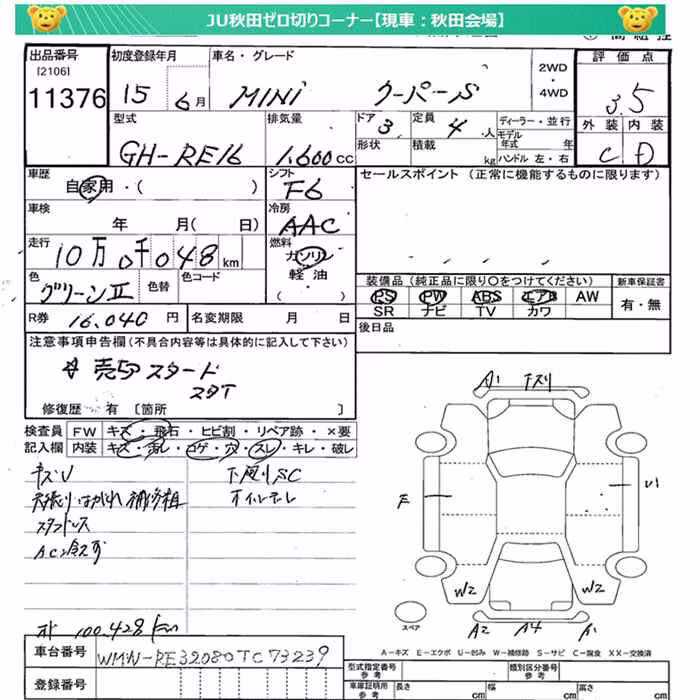 JU秋田ゼロ切りコーナー【現車：秋田会場】
出品番号
[2106]
11376
初度登録年月
15 6月
車名・グレード
MINI クーパーS
2WD・4WD
評価点
3.5
外装 内装
C D
型式
GH-RE16
排気量
1.600cc
ドア 3
定員 4人
ディーラー・並行
モデル年式 年
形状
積載 kg
ハンドル 左・右
車歴
自家用・( )
シフト
F6
セールスポイント (正常に機能するものに限ります)
車検
年 月( 日)
冷房
AAC
走行
10万0千048km
燃料
ガソリン
軽油
( )
色
グリーンII
色替
色コード
装備品 (純正品に限り○をつけてください)
新車保証書
PS PW ABS エアB AW
有・無
SR ナビ TV カワ
R券 16.040円
名変期限 月 日
後日品
注意事項申告欄(不具合内容等は具体的に記入して下さい)
☆売切スタート
スタT
修復歴 有 [箇所 ]
検査員 FW キズ・飛石・ヒビ割・リペア跡・×要
記入欄 内装 キズ・汚レ・コゲ・穴・スレ・キレ・破レ
キズU
下廻りSC
天張りはがれ補修粗
オイルモレ
スタッドレス
AC冷えず
A1 下スリ
E
U1
W2 W2
スペア
A2 A4 A1
A-キズ E-エクボ U-凹み W-補修跡 S-サビ C-腐食 XX-交換済
100.428km
車台番号 WMW-RE32080TC73239
登録番号
型式指定番号 参考
類別区分番号 参考
車庫証明用 参考 長さ cm 幅 cm 高さ cm